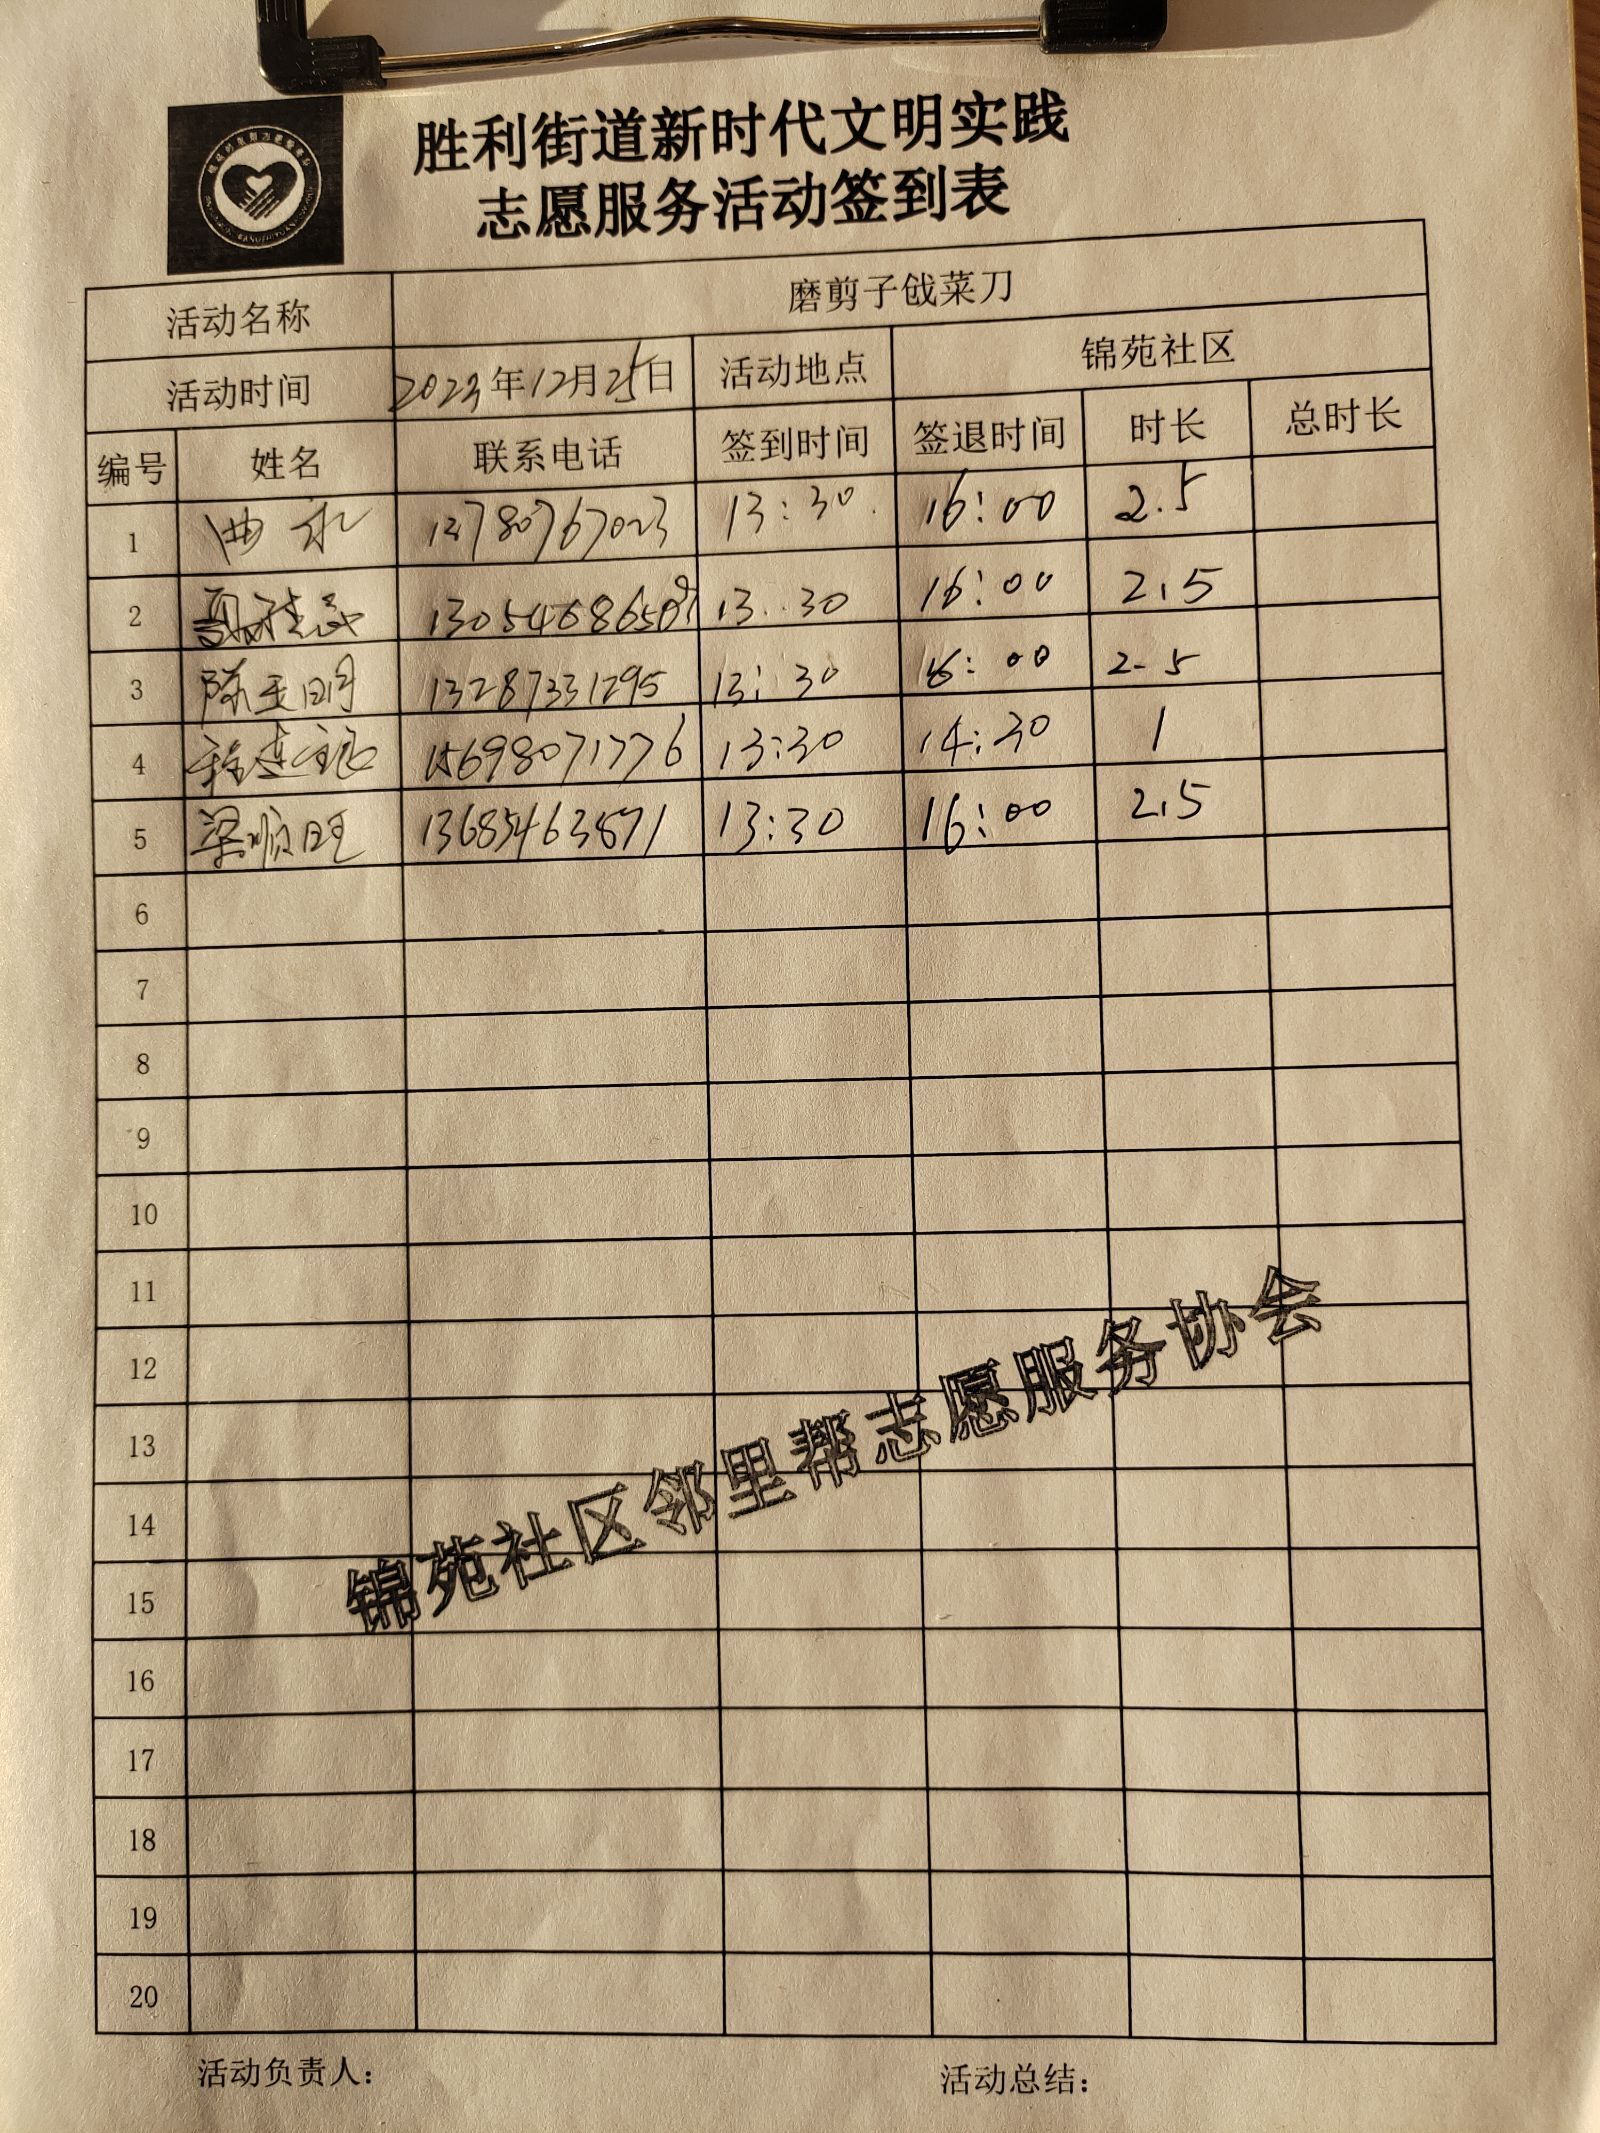 胜利街道新时代文明实践
志愿服务活动签到表
活动名称 磨剪子戗菜刀
活动时间 2023年12月25日 活动地点 锦苑社区
编号 姓名 联系电话 签到时间 签退时间 时长 总时长
1 曲永 13780767023 13:30 16:00 2.5
2 13:30 16:00 2.5
3 陈玉明 13287331295 13:30 16:00 2.5
4 15698071776 13:30 14:30 1
5 梁顺旺 13685463871 13:30 16:00 2.5
6
7
8
9
10
11
12
13
14
15
16
17
18
19
20
锦苑社区邻里帮志愿服务协会
活动负责人: 活动总结: